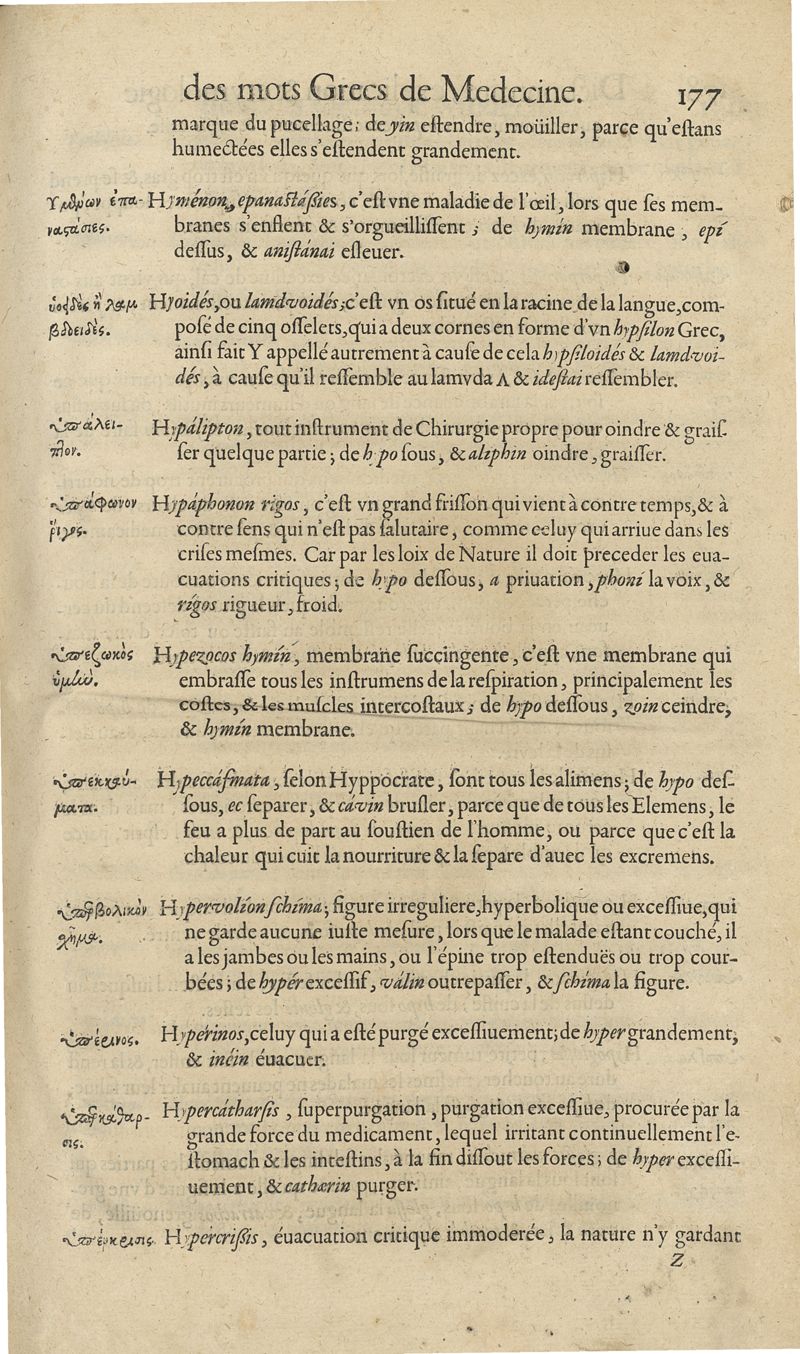 des mots Grecs de Medecine. 177
marque du pucellage; de yin eſtendre, moüiller, parce qu'eſtans
humectées elles s'eſtendent grandement.
Hyménon epanaſtáſies, c'eſt vne maladie de l'œil, lors que ſes mem-
branes s'enflent & s'orgueilliſſent; de hymín membrane, epí
deſſus, & aniſtánai eſleuer.
ὑοειδὲς ἢ λαμ
βδοειδὲς.
Hyoidés, ou lamdvoidés; c'eſt vn os ſitué en la racine de la langue, com-
poſé de cinq oſſelets, qui a deux cornes en forme d'vn hypſilon Grec,
ainſi fait Y appellé autrement à cauſe de cela hypſiloidés & lamdvoi-
dés, à cauſe qu'il reſſemble au lamvda Λ & ideſtai reſſembler.
ὑπάλει-
πτον.
Hypálipton, tout inſtrument de Chirurgie propre pour oindre & graiſ
ſer quelque partie; de hypo ſous, & aliphin oindre, graiſſer.
ὑπάφωνον
ῥῖγος.
Hypáphonon rigos, c'eſt vn grand friſſon qui vient à contre temps, & à
contre ſens qui n'eſt pas ſalutaire, comme celuy qui arriue dans les
criſes meſmes. Car par les loix de Nature il doit preceder les eua-
cuations critiques; de hypo deſſous, a priuation, phoní la voix, &
rígos rigueur, froid.
ὑπεζωκὸς
ὑμὴν.
Hypezocos hymín, membrane ſuccingente, c'eſt vne membrane qui
embraſſe tous les inſtrumens de la reſpiration, principalement les
coſtes, & les muſcles intercoſtaux; de hypo deſſous, zoin ceindre,
& hymín membrane.
ὑπεκκαύ-
ματα.
Hypeccáſmata, ſelon Hyppocrate, ſont tous les alimens; de hypo deſ-
ſous, ec ſeparer, & cávin bruſler, parce que de tous les Elemens, le
feu a plus de part au ſouſtien de l'homme, ou parce que c'eſt la
chaleur qui cuit la nourriture & la ſepare d'auec les excremens.
ὑπερβολικὸν
σχῆμα.
Hypervolíon ſchíma; figure irreguliere, hyperbolique ou exceſſiue, qui
ne garde aucune iuſte meſure, lors que le malade eſtant couché, il
a les jambes ou les mains, ou l'épine trop eſtenduës ou trop cour-
bées; de hypér exceſſif, válin outrepaſſer, & ſchíma la figure.
ὑπέρινος.
Hypérinos, celuy qui a eſté purgé exceſſiuement; de hyper grandement,
& inéin éuacuer.
ὑπερκάθαρ-
σις.
Hypercátharſis, ſuperpurgation, purgation exceſſiue, procurée par la
grande force du medicament, lequel irritant continuellement l'e-
ſtomach & les inteſtins, à la fin diſſout les forces; de hyper exceſſi-
uement, & cathærin purger.
ὑπέρκρισις.
Hypercriſis, éuacuation critique immoderée, la nature n'y gardant
Z